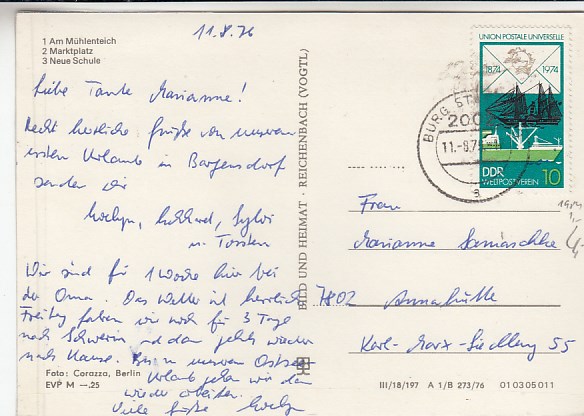 11.8.76
1 Am Mühlenteich
2 Marktplatz
3 Neue Schule
Liebe Tante Marianne!
Recht herzliche Grüße von unserem
ersten Urlaub in Bargensdorf
senden Dir
Evelyn, Ekkhard, Sylvi
u. Torsten
Wir sind für 1 Woche hier bei
der Oma. Das Wetter ist herrlich
Freitag fahren wir noch für 3 Tage
nach Schwerin und dann geht's wieder
nach Hause. unseren Ostsee-
Urlaub gehn wir dann
wieder arbeiten.
Viele Grüße Evelyn
Foto: Corazza, Berlin
EVP M –.25
BILD UND HEIMAT · REICHENBACH (VOGTL)
UNION POSTALE UNIVERSELLE
1874 1974
DDR 10
WELTPOSTVEREIN
BURG ST
200
11.-8.7
a
Frau
Marianne
7802 Annahütte
Karl-Marx-Siedlung 55
III/18/197 A 1/B 273/76 01 03 05 011